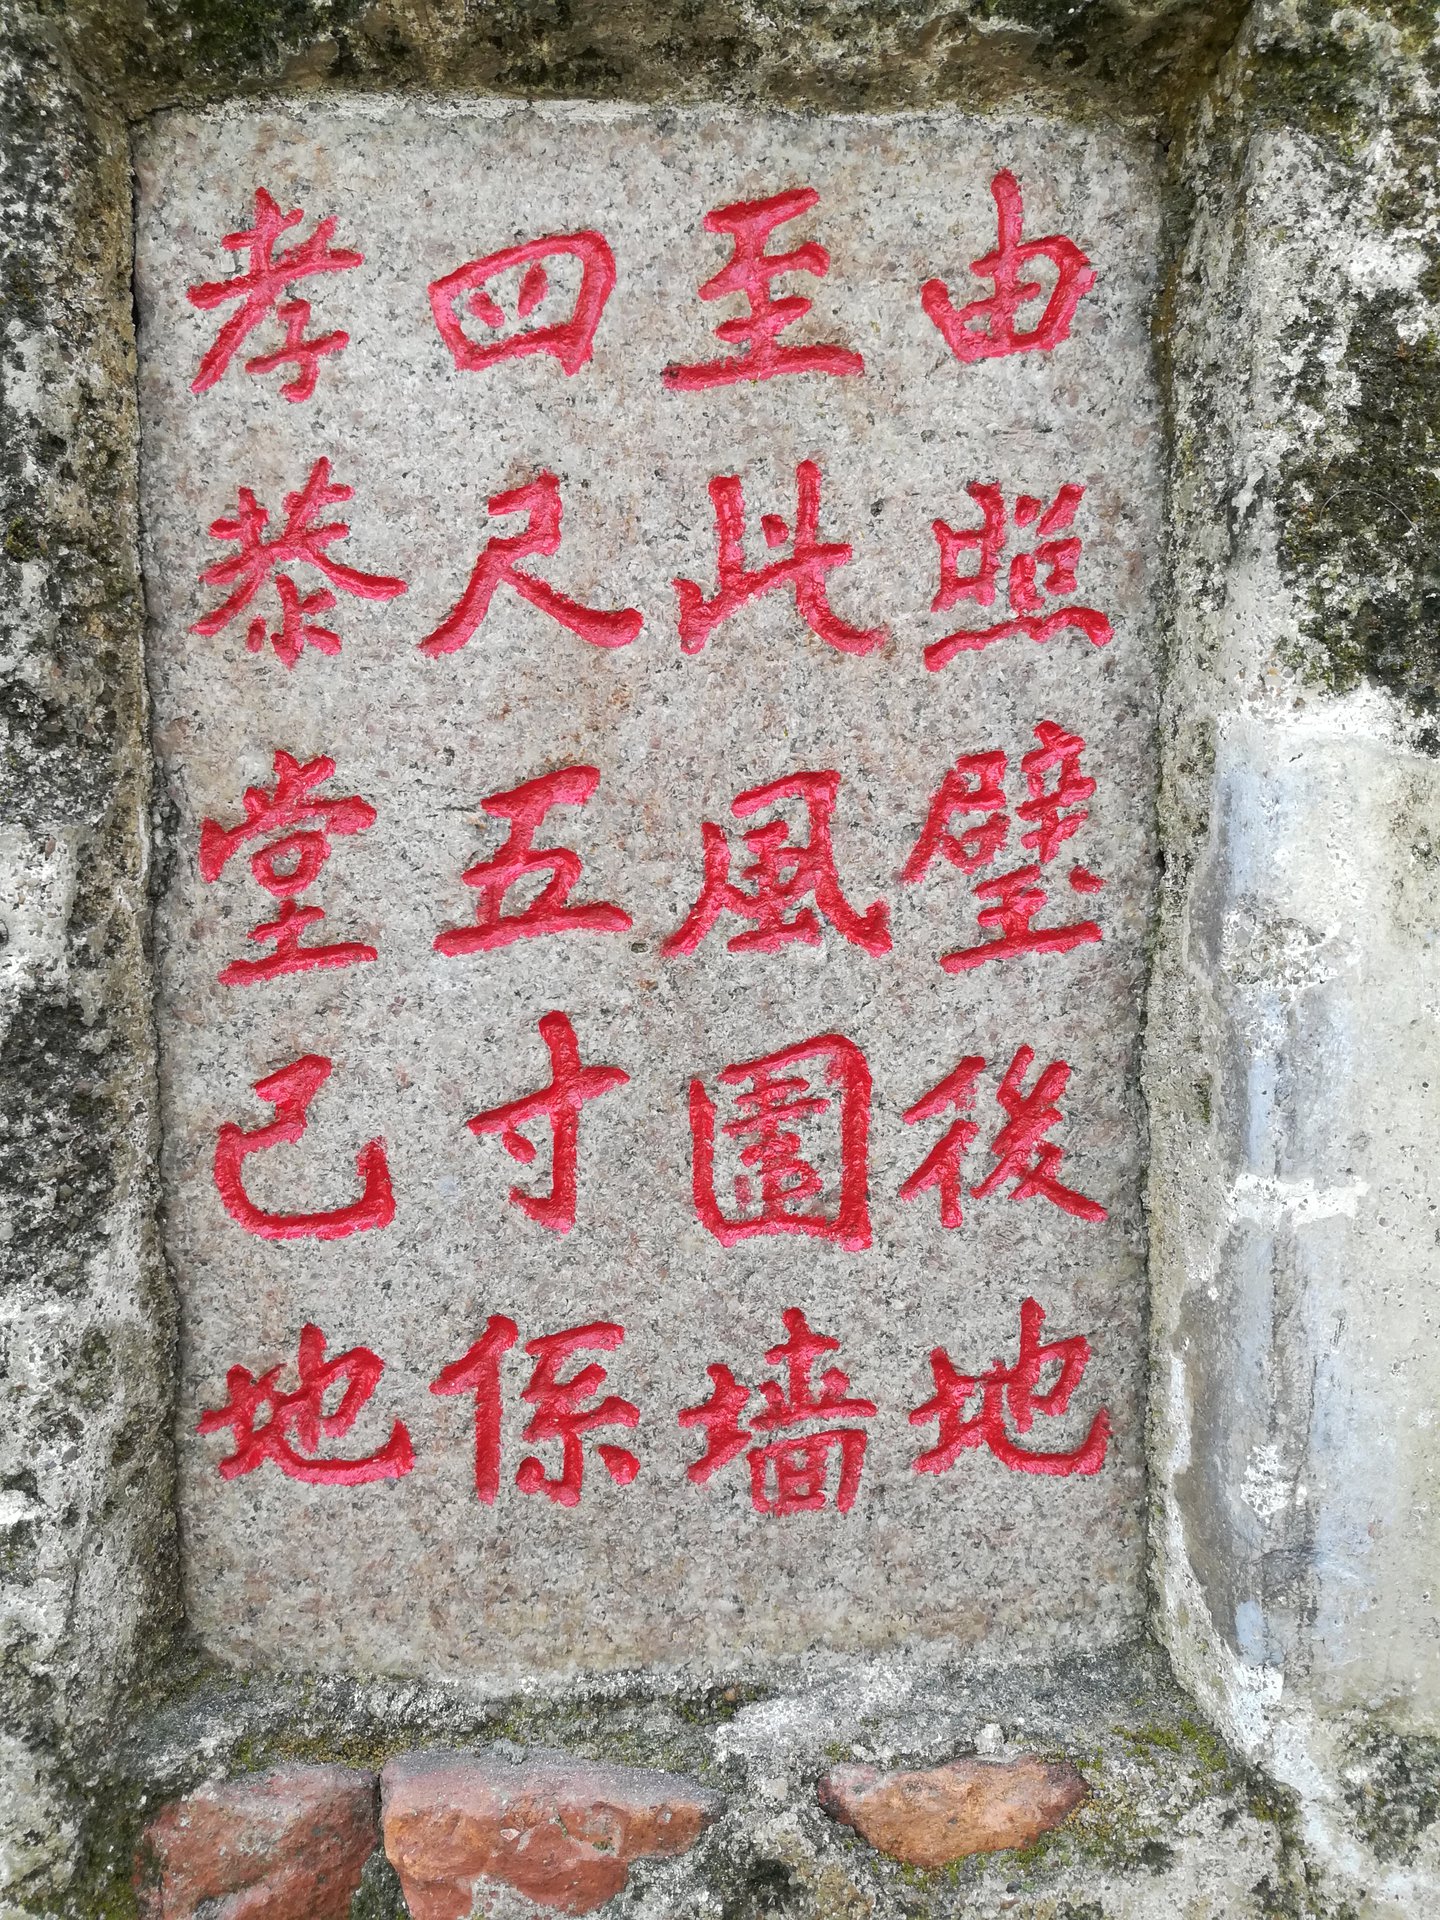 由照壁後地
至此風圍墙
四尺五寸係
孝恭堂己地